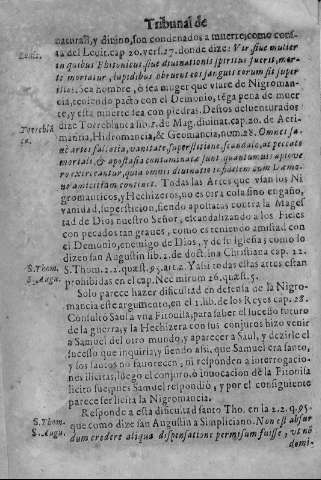 Tribunal de
natural, y diuino, son condenados a muerte, como cons-
Leuit.
ta del Leuit. cap. 20. vers. 27. donde dize: Vir, siue mulier
in quibus Phitonicus, siue diuinationis spiritus fuerit, mor-
te moriatur, lapidibus obruent eos, sanguis eorum sit super
illos. Sea hombre, ò sea muger que vsare de Nigroman-
cia, teniendo pacto con el Demonio, tēga pena de muer-
te, y esta muerte sea con piedras. Destos
Torreblā
ca.
dize Torreblanca lib. 1. de Mag. diuinat. cap. 20. de Aeri-
mancia, Hidromancia, & Geomancia, num. 28. Omnes sa-
ne artes falsitatis, vanitate, superstitione, scandalo, ac peccato
mortali, & apostasia contaminata sunt
quia omnis diuinatio
Todas las Artes que vsan los Ni-
gromanticos, y Hechizeros, no es otra cosa sino engaño,
vanidad, supersticion, siendo apostatas contra la Mages-
tad de Dios nuestro Señor, escandalizando a los Fieles
con pecados tan graues, como es teniendo amistad con
el Demonio, enemigo de Dios, y de su Iglesia, como lo
dize san Augustin lib. 2. de doct. ina Christiana cap. 22.
S. Thom.
S. Augu.
S. Thom. 2. 2. quæst. 95. art. 2. Y assi todas estas artes estan
prohibidas en el cap. Nec mirum 26. quæst. 5.
Solo parece hazer dificultad en defensa de la Nigro-
mancia este argumento, en el 1. lib. de los Reyes cap. 28.
Consultò Saul a vna Fitonisa, para saber el sucesso futuro
de la guerra, y la Hechizera con sus conjuros hizo venir
a Samuel del otro mundo, y aparecer a Saul, y dezirle el
sucesso que inquiria, y siendo assi, que Samuel era santo,
y los santos no fauorecen, ni responden a interrogacio-
nes ilicitas, luego el conjuro, ò inuocacion de la Fitonisa
licito fue, pues Samuel respondiò, y por el consiguiente
parece ser licita la Nigromancia.
S. Thom.
S. Augu.
Responde a esta dificultad santo Tho. en la 2. 2. q. 95.
que como dize san Augustin a Simpliciano. Non est absur
dum credere aliqua dispensatione permissum fuisse, vt nō
domi-